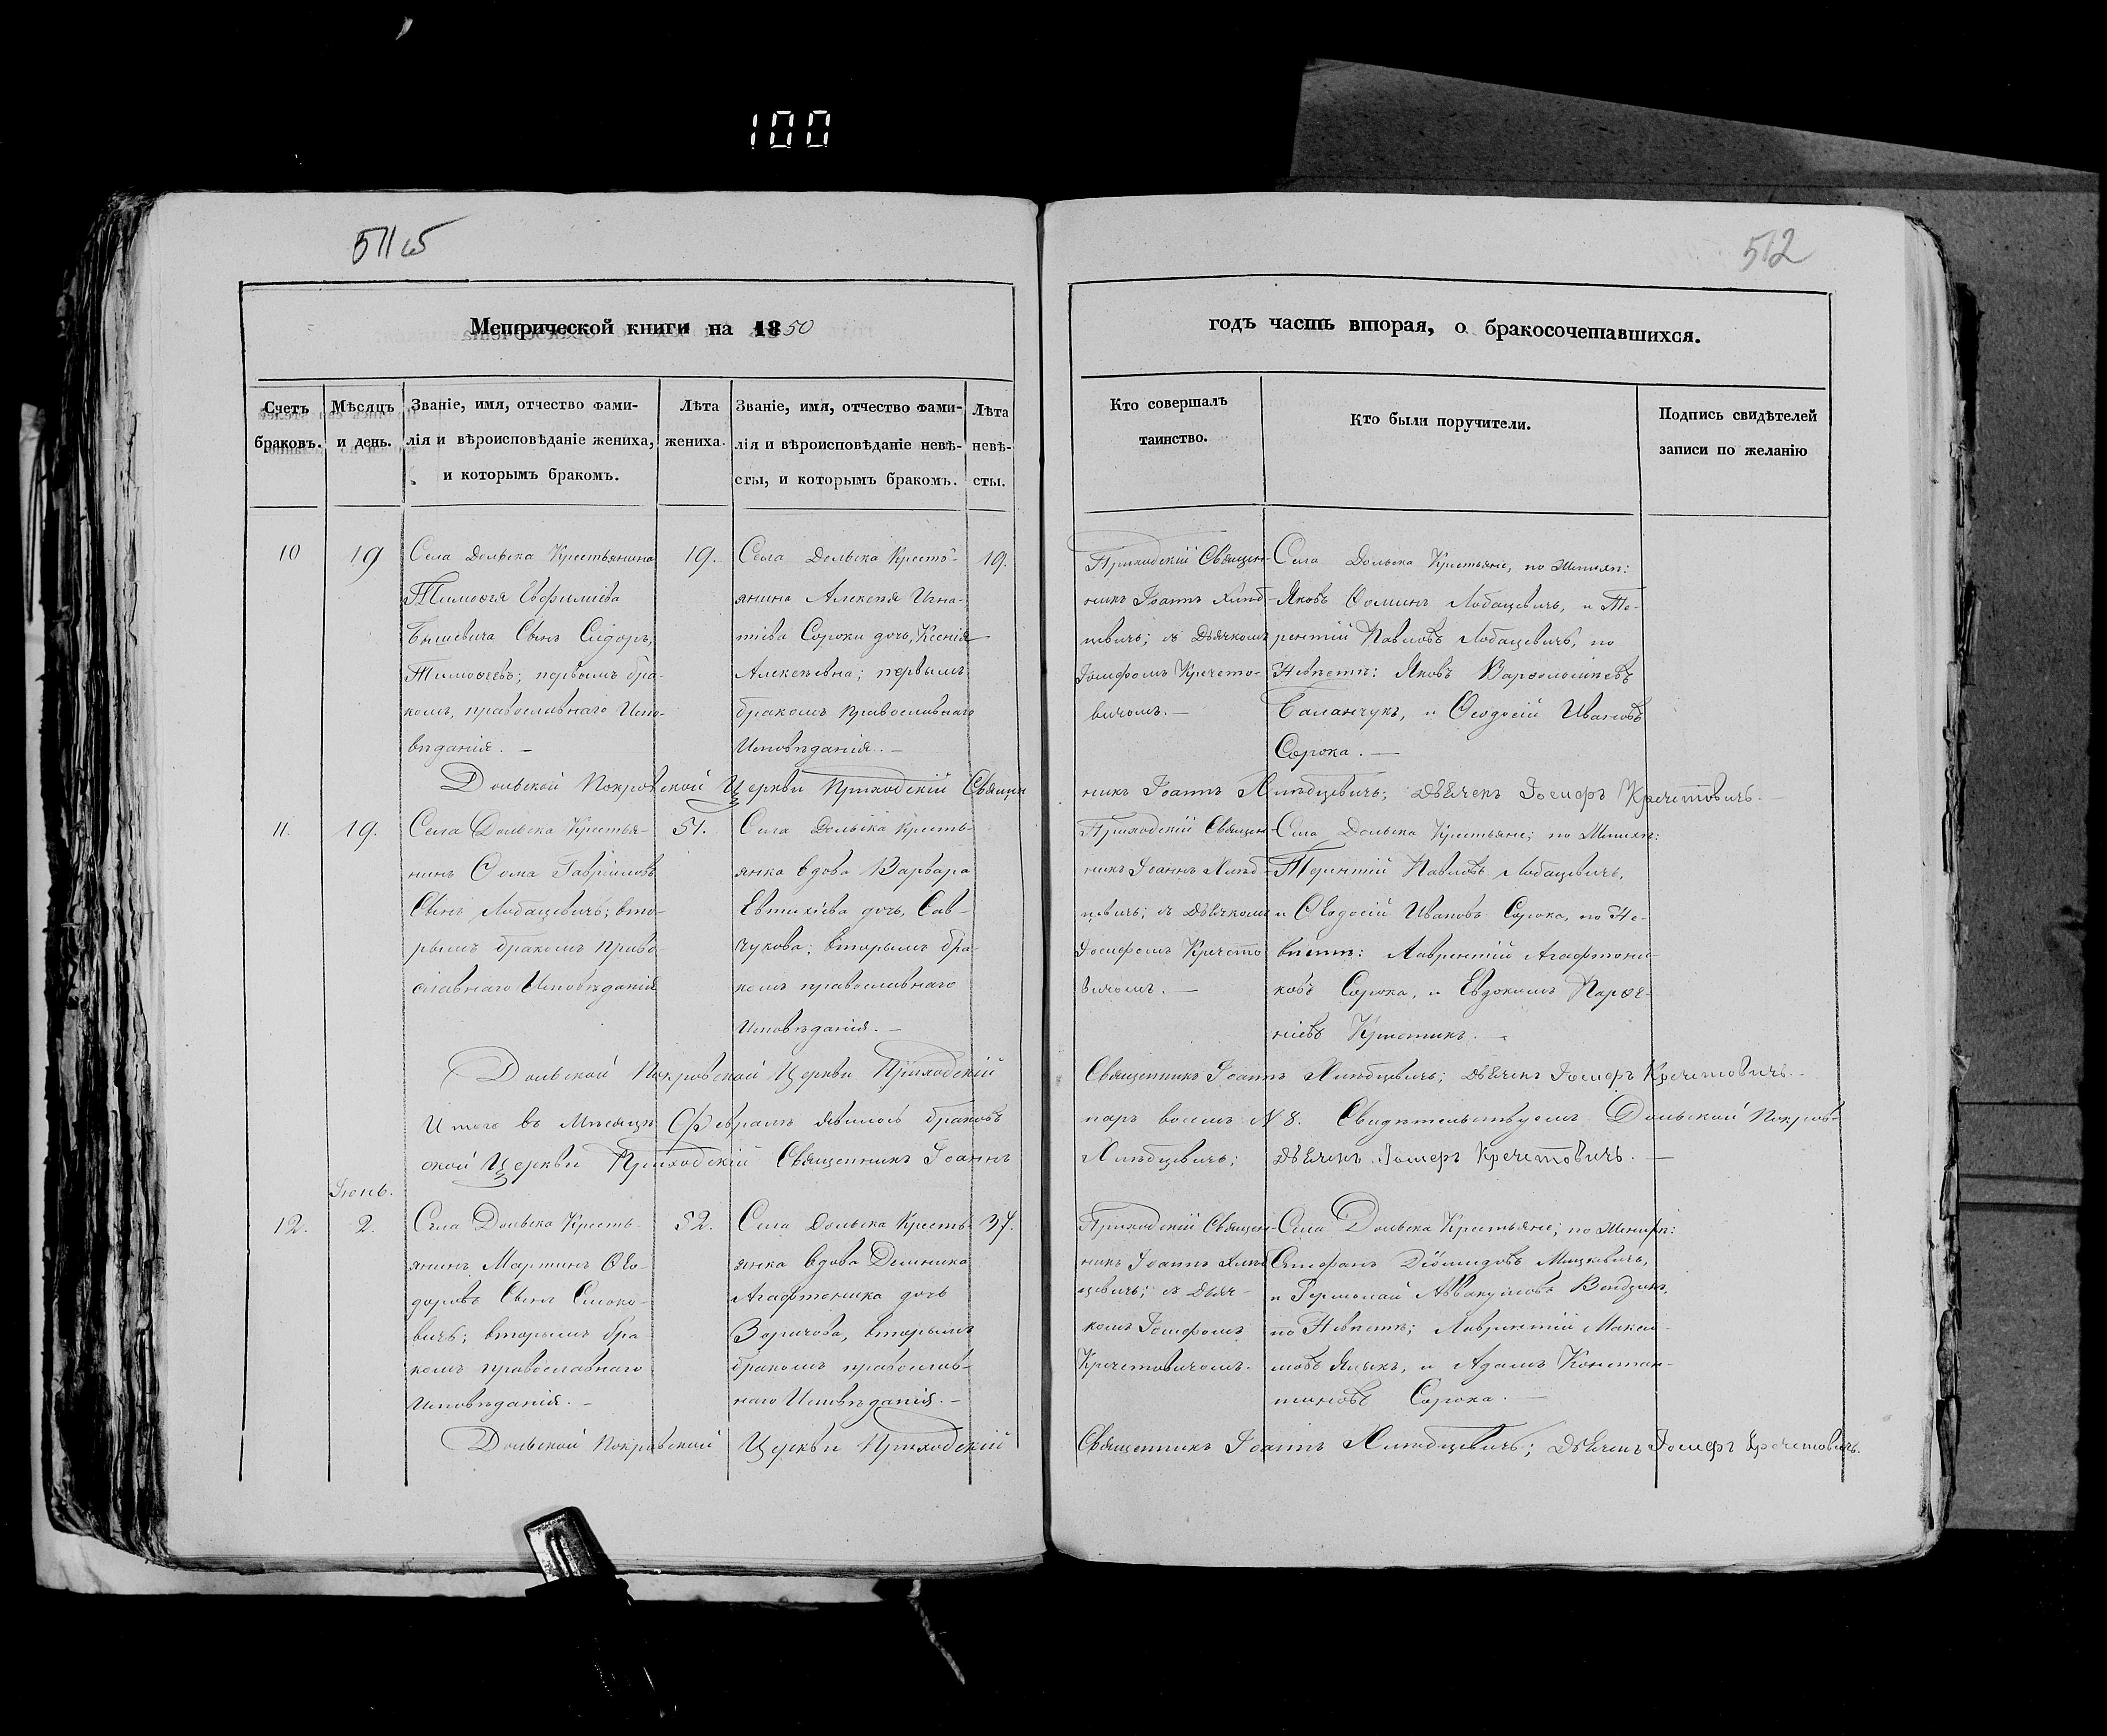 100
511 об
512
Метрической книги на 1850
годъ часть вторая, о бракосочетавшихся.
Счетъ браковъ.
Мѣсяцъ и день.
Званіе, имя, отчество фами-
лія и вѣроисповѣданіе жениха,
и которымъ бракомъ.
Лѣта
жениха.
Званіе, имя, отчество фами-
лія и вѣроисповѣданіе невѣ-
сты, и которымъ бракомъ.
Лѣта
невѣ-
сты.
Кто совершалъ
таинство.
Кто были поручители.
Подпись свидѣтелей
записи по желанію
10
19
Села Дольска Крестьянина
Тимоѳея Евфиміева
сынъ Сидоръ,
Тимоѳеевъ; первымъ бра-
комъ, православнаго Испо-
вѣданія. —
19.
Села Дольска Кресть-
янина Алексѣя Игна-
тіева Сороки дочь, Ксенія
Алексѣевна; первымъ
бракомъ православнаго
Исповѣданія. —
19.
Приходскій Священ-
никъ Іоаннъ Хлѣб-
цевичъ; съ Дьячкомъ
Іосифомъ Кречето-
вичомъ. —
Села Дольска Крестьяне, по Женихѣ:
Яковъ Ѳоминъ Лобацевичъ, и Те-
рентій Павловъ Лобацевичъ, по
Невѣстѣ: Яковъ Варѳоломѣевъ
Баланчукъ, и Ѳеодосій Ивановъ
Сорока. —
Дольской Покровской Церкви Приходскій Священ
никъ Іоаннъ Хлѣбцевичъ; Дьячекъ Іосифъ Кречетовичъ. —
11.
19.
Села Дольска Крестья-
нинъ Ѳома Гавріиловъ
Сынъ Лобацевичъ; вто-
рымъ бракомъ Право-
славнаго Исповѣданія
51.
Села Дольска Кресть-
янка вдова Варвара
Евтихіева дочь, Сав-
чукова; вторымъ бра-
комъ православнаго
Исповѣданія. —
Приходскій Священ-
никъ Іоаннъ Хлѣб-
цевичъ; съ Дьячкомъ
Іосифомъ Кречето
вичомъ. —
Села Дольска Крестьяне; по Женихѣ:
Терентій Павловъ Лобацевичъ,
и Ѳеодосій Ивановъ Сорока, по Не-
вѣстѣ: Лаврентій Агафтони-
ковъ Сорока, и Евдокимъ Парѳе-
ніевъ
Дольской Покровской Церкви Приходскій
Священникъ Іоаннъ Хлѣбцевичъ; Дьячекъ Іосифъ Кречетовичъ. —
Итого въ Мѣсяцѣ Февралѣ явилось браковъ
паръ восемь N 8. Свидѣтельствуемъ Дольской Покров-
ской Церкви Приходскій Священникъ Іоаннъ
Хлѣбцевичъ; Дьячекъ Іосифъ Кречетовичъ. —
Іюнь.
12.
2.
Села Дольска Кресть-
янинъ Мартинъ Ѳео-
доровъ Сынъ Смоко-
вичъ; вторымъ бра-
комъ православнаго
Исповѣданія. —
52.
Села Дольска Кресть-
янка Вдова Доминика
Агафтоника дочь
вторымъ
бракомъ православ-
наго Исповѣданія. —
37.
Приходскій Священ-
никъ Іоаннъ Хлѣб
цевичъ; съ Дьяч-
комъ Іосифомъ
Кречетовичомъ.
Села Дольска Крестьяне; по Женихѣ:
Стефанъ Діомидовъ Мицкевичъ,
и Германъ Аввакумовъ
по Невѣстѣ; Лаврентій Макси-
мовъ и Адамъ Констан-
тиновъ Сорока. —
Дольской Покровской Церкви Приходскій
Священникъ Іоаннъ Хлѣбцевичъ; Дьячекъ Іосифъ Кречетовичъ.